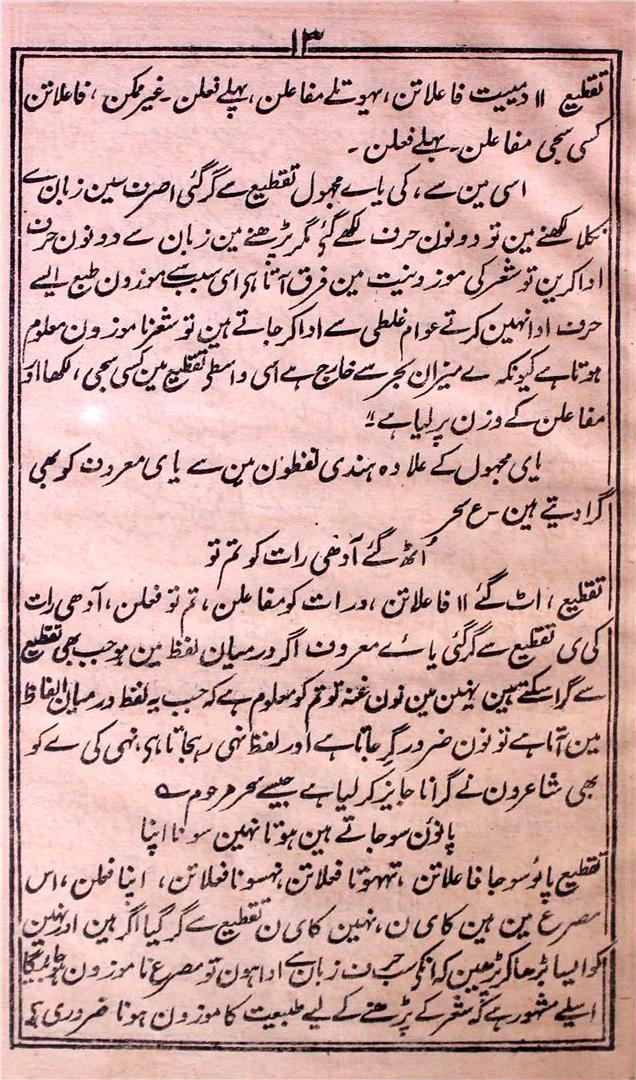 ۱۳
تقطیع ॥ دسیت فاعلاتن، ہوتلے مفاعلن، پہلے فعلن۔ غیر ممکن، فاعلاتن
کسی سجی مفاعلن۔ پہلے فعلن۔
اسی مین سے، کی یاے مجہول تقطیع سے گر گئی صرف سین زبان سے
نکلا لکھنے مین تو دونون حرف لکھے گئے مگر پڑھنے مین زبان سے دونون حرف
ادا کرین تو شعر کی موزونیت مین فرق آتا ہی اسی سبب سے موزون طبع ایسے
حرف ادا نہین کرتے عوام غلطی سے ادا کر جاتے ہین تو شعر نا موزون معلوم
ہوتا ہے کیونکہ ے میزان بحر سے خارج ہے اسی واسطے تقطیع مین کسی سجی، لکھا اور
مفاعلن کے وزن پر لیا ہے ॥
یای مجہول کے علاوہ ہندی لفظون مین سے یای معروف کو بھی
گرا دیتے ہین۔ ع سحر
اُٹھ گئے آدھی رات کو تم تو
تقطیع، اٹ گئے ॥ فاعلاتن، درات کو مفاعلن، تم تو فعلن، آدھی رات
کی ی تقطیع سے گر گئی یاے معروف اگر درمیان لفظ مین ہو جب بھی تقطیع
سے گرا سکتے ہین نہین مین نون غنہ تو تم کو معلوم ہے کہ جب یہ لفظ درمیان الفاظ
مین آتا ہے تو نون ضرور گر جاتا ہے اور لفظ نہی رہجاتا ہی، نہی کی ے کو
بھی شاعرون نے گرانا جایز کر لیا ہے جیسے سحر مرحوم ؎
پاؤن سو جاتے ہین ہوتا نہین سونا اپنا
تقطیع پاؤسوجا فاعلاتن، تہہوتا فعلاتن نہسونا فعلاتن، اپنا فعلن، اس
مصرع مین ہین کا ی ن، نہین کا ی ن تقطیع سے گر گیا اگر ہین اور نہین
کو ایسا بڑھا کر پڑھین کہ انکے سب حرف زبان سے ادا ہون تو مصرع نا موزون ہو جائیگا
اسلیے مشہور ہے کہ شعر کے پڑھنے کے لیے طبیعت کا موزون ہونا ضروری ہے